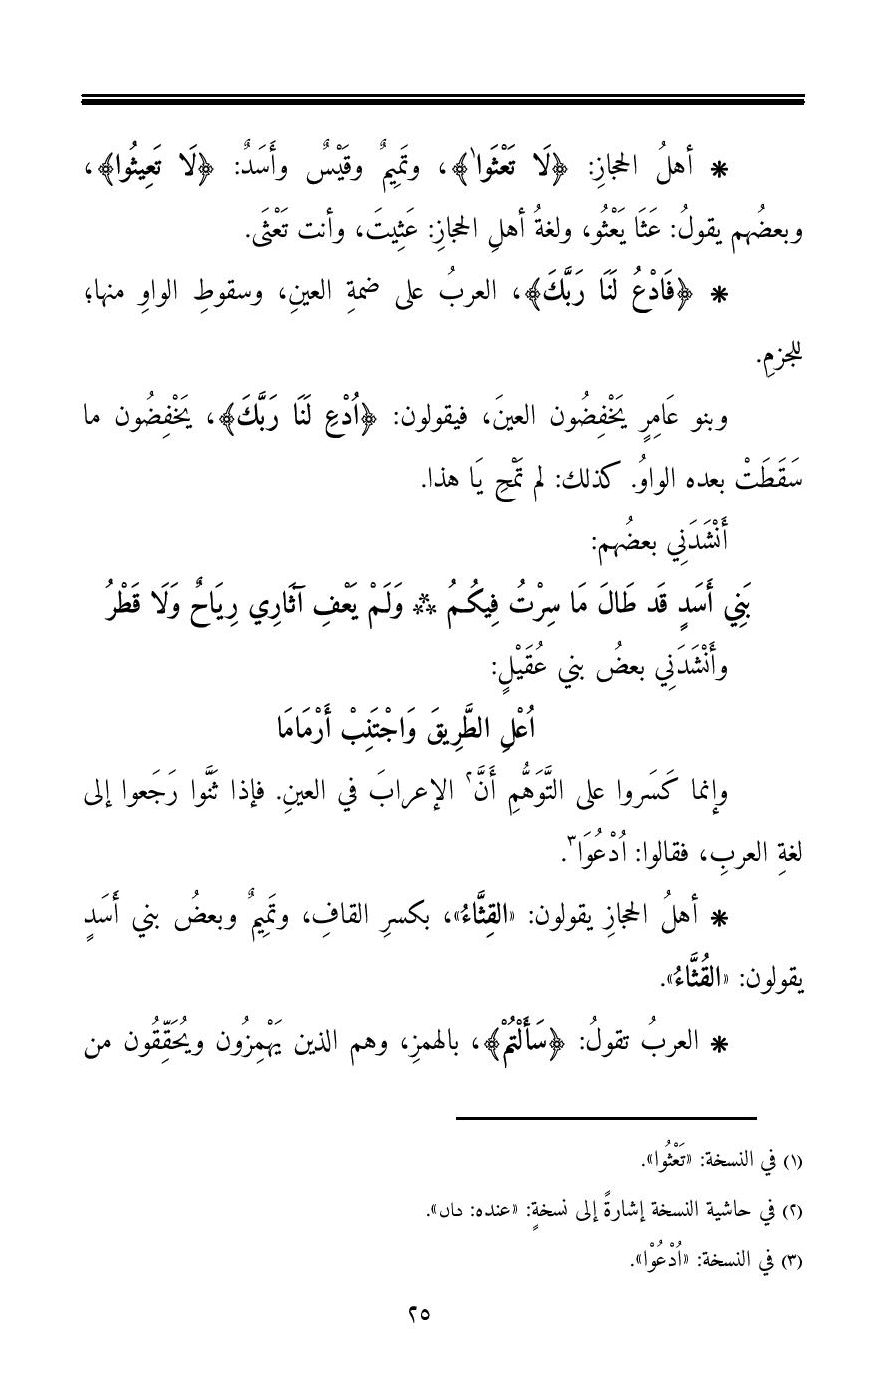 * أهلُ الحجازِ: ﴿لَا تَعْثَوا١﴾، وتَمِيمٌ وقَيْسٌ وأَسَدٌ: ﴿لَا تَعِيثُوا﴾،
وبعضُهم يقولُ: عَثَا يَعْثُو، ولغةُ أهلِ الحجازِ: عَثِيتَ، وأنت تَعْثَى.
* ﴿فَادْعُ لَنَا رَبَّكَ﴾، العربُ على ضمةِ العينِ، وسقوطِ الواوِ منها؛
للجزمِ.
وبنو عَامِرٍ يَخْفِضُون العينَ، فيقولون: ﴿اُدْعِ لَنَا رَبَّكَ﴾، يَخْفِضُون ما
سَقَطَتْ بعده الواوُ. كذلك: لم تَمْحِ يَا هذا.
أَنْشَدَنِي بعضُهم:
بَنِي أَسَدٍ قَد طَالَ مَا سِرْتُ فِيكُمُ ** وَلَمْ يَعْفِ آثَارِي رِيَاحٌ وَلَا قَطْرُ
وأَنْشَدَنِي بعضُ بني عُقَيْلٍ:
اُعْلِ الطَّرِيقَ وَاجْتَنِبْ أَرْمَامَا
وإنما كَسَروا على التَّوَهُّمِ أَنَّ٢ الإعرابَ في العينِ. فإذا ثَنَّوا رَجَعوا إلى
لغةِ العربِ، فقالوا: اُدْعُوَا٣.
* أهلُ الحجازِ يقولون: «القِثَّاءُ»، بكسرِ القافِ، وتَمِيمٌ وبعضُ بني أَسَدٍ
يقولون: «القُثَّاءُ».
* العربُ تقولُ: ﴿سَأَلْتُمْ﴾، بالهمزِ، وهم الذين يَهْمِزُون ويُحَقِّقُون من
(١) في النسخة: «تَعْثُوا».
(٢) في حاشية النسخة إشارةً إلى نسخةٍ: «عنده: داں».
(٣) في النسخة: «اُدْعُوْا».
٢٥